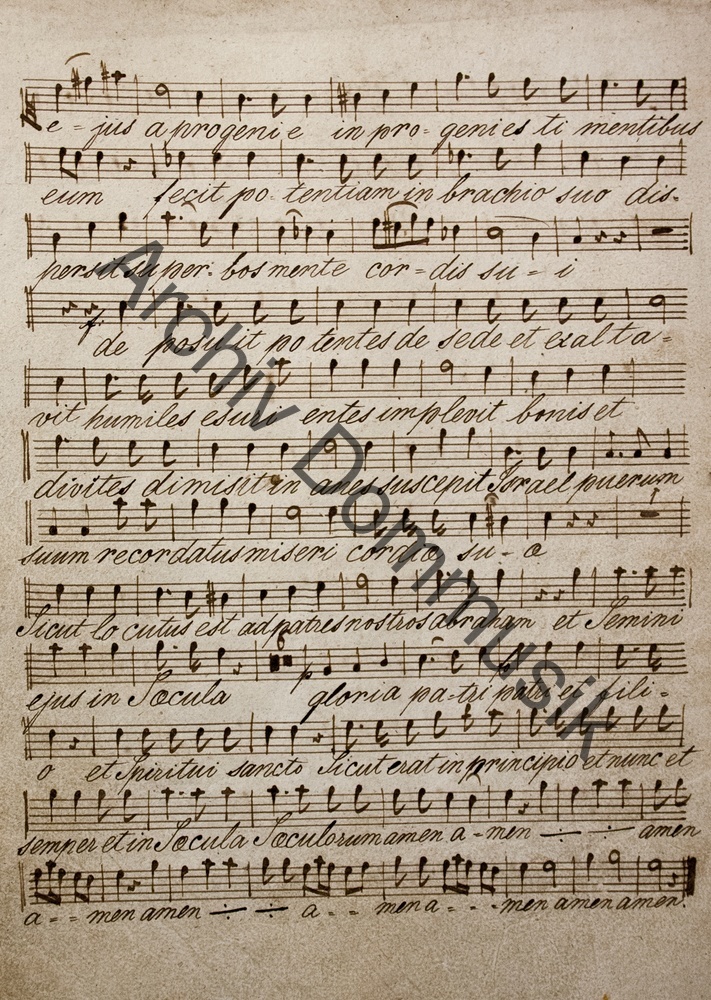 e - jus a progeni e in pro - genies ti mentibus
eum fecit po - tentiam in brachio suo dis -
persit super bos mente cor - dis su - i
de posuit po tentes de sede et exal ta -
vit humiles esuri entes implevit bonis et
divites dimisit in anes suscepit Israel puerum
suum recordatus miseri cordiæ su - æ
Sicut lo cutus est ad patres nostros abraham et Semini
ejus in Sæcula gloria pa - tri patri et fili -
o et Spiritui sancto Sicut erat in principio et nunc et
semper et in Sæcula Sæculorum amen a - men amen
a - - men amen a - - men a - - - men amen amen.
Archiv Dommusik